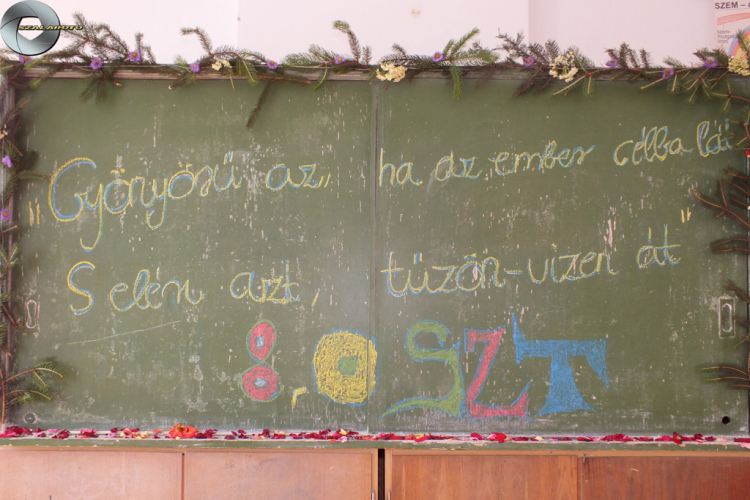 SZALAIFOTO
SZEM –
„Gyönyörű az, ha az ember célba lát
S elén azt, tűzön-vízen át”
8.0 SZT